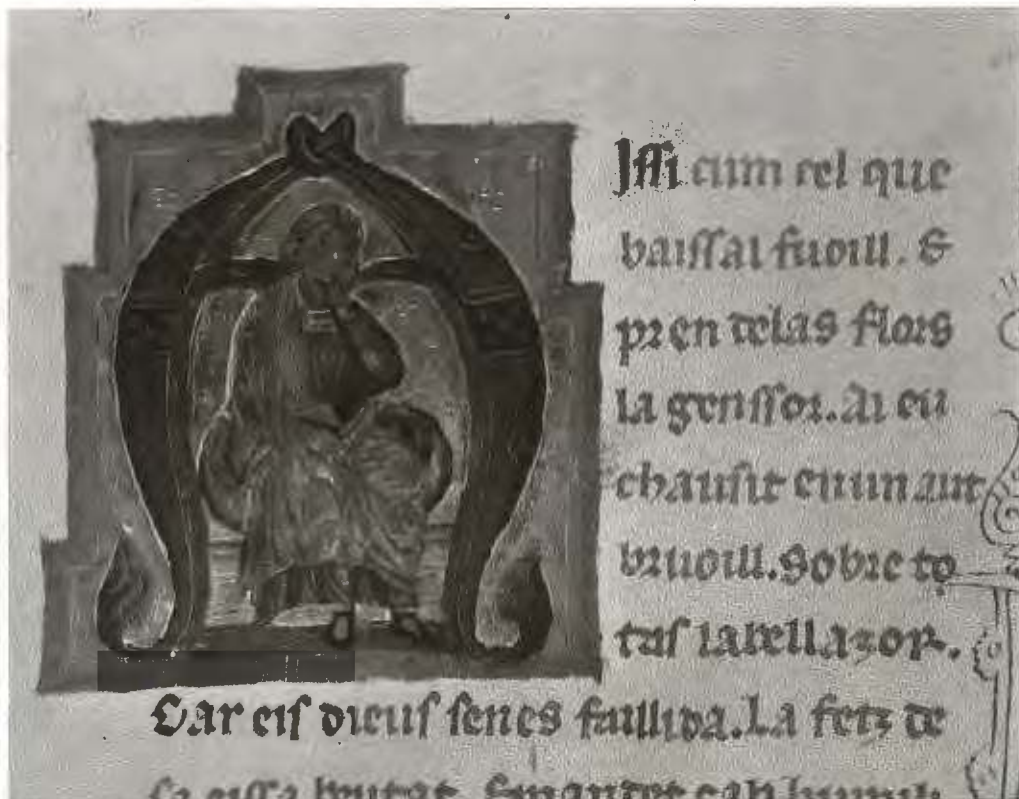 Issi cum cel que
baissal fuoill. &
pren delas flors
la genssor. Ai eu
chausit en un aut
bruoill. Sobre to
tas la bellazor.
Car eis dieus senes faillida. La fetz de
sa eissa beutat.